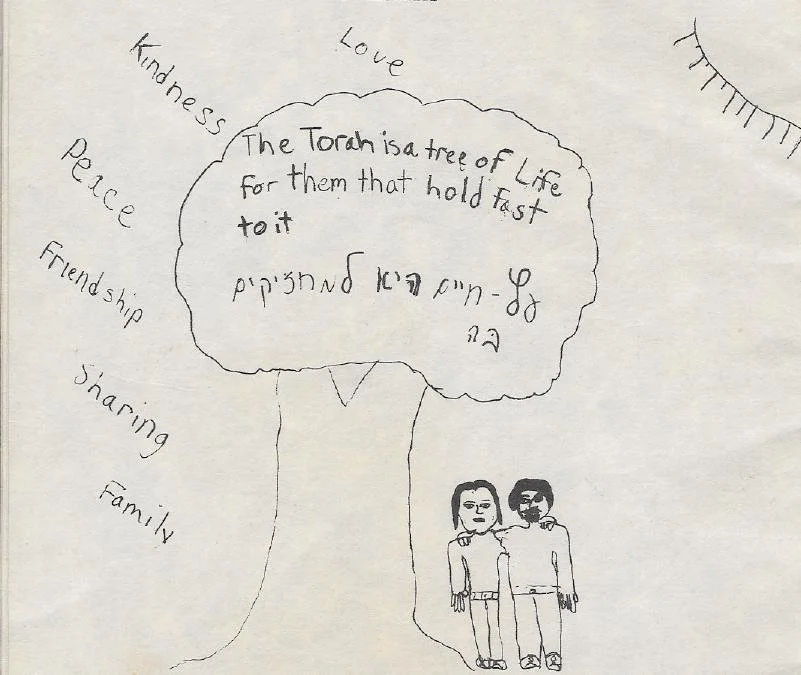 Love
Kindness
Peace
Friendship
Sharing
Family
The Torah is a tree of Life
for them that hold fast
to it
עץ-חיים היא למחזיקים
בה